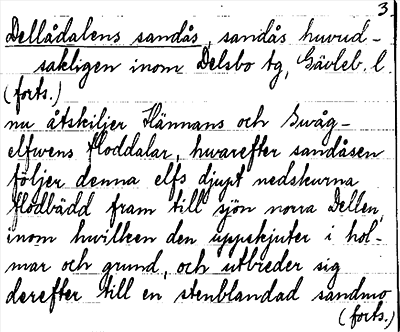 3.
Dellådalens sandås, sandås huvud-
sakligen inom Delsbo tg, Gävleb. l.
(forts.)
nu åtskiljer Hännans och Svåg-
elfwens floddalar, hwarefter sandåsen
följer denna elfs djupt nedskurna
flodbädd fram till sjön norra Dellen,
inom hwilken den uppskjuter i hol-
mar och grund, och utbreder sig
derefter till en stenblandad sandmo
(forts.)